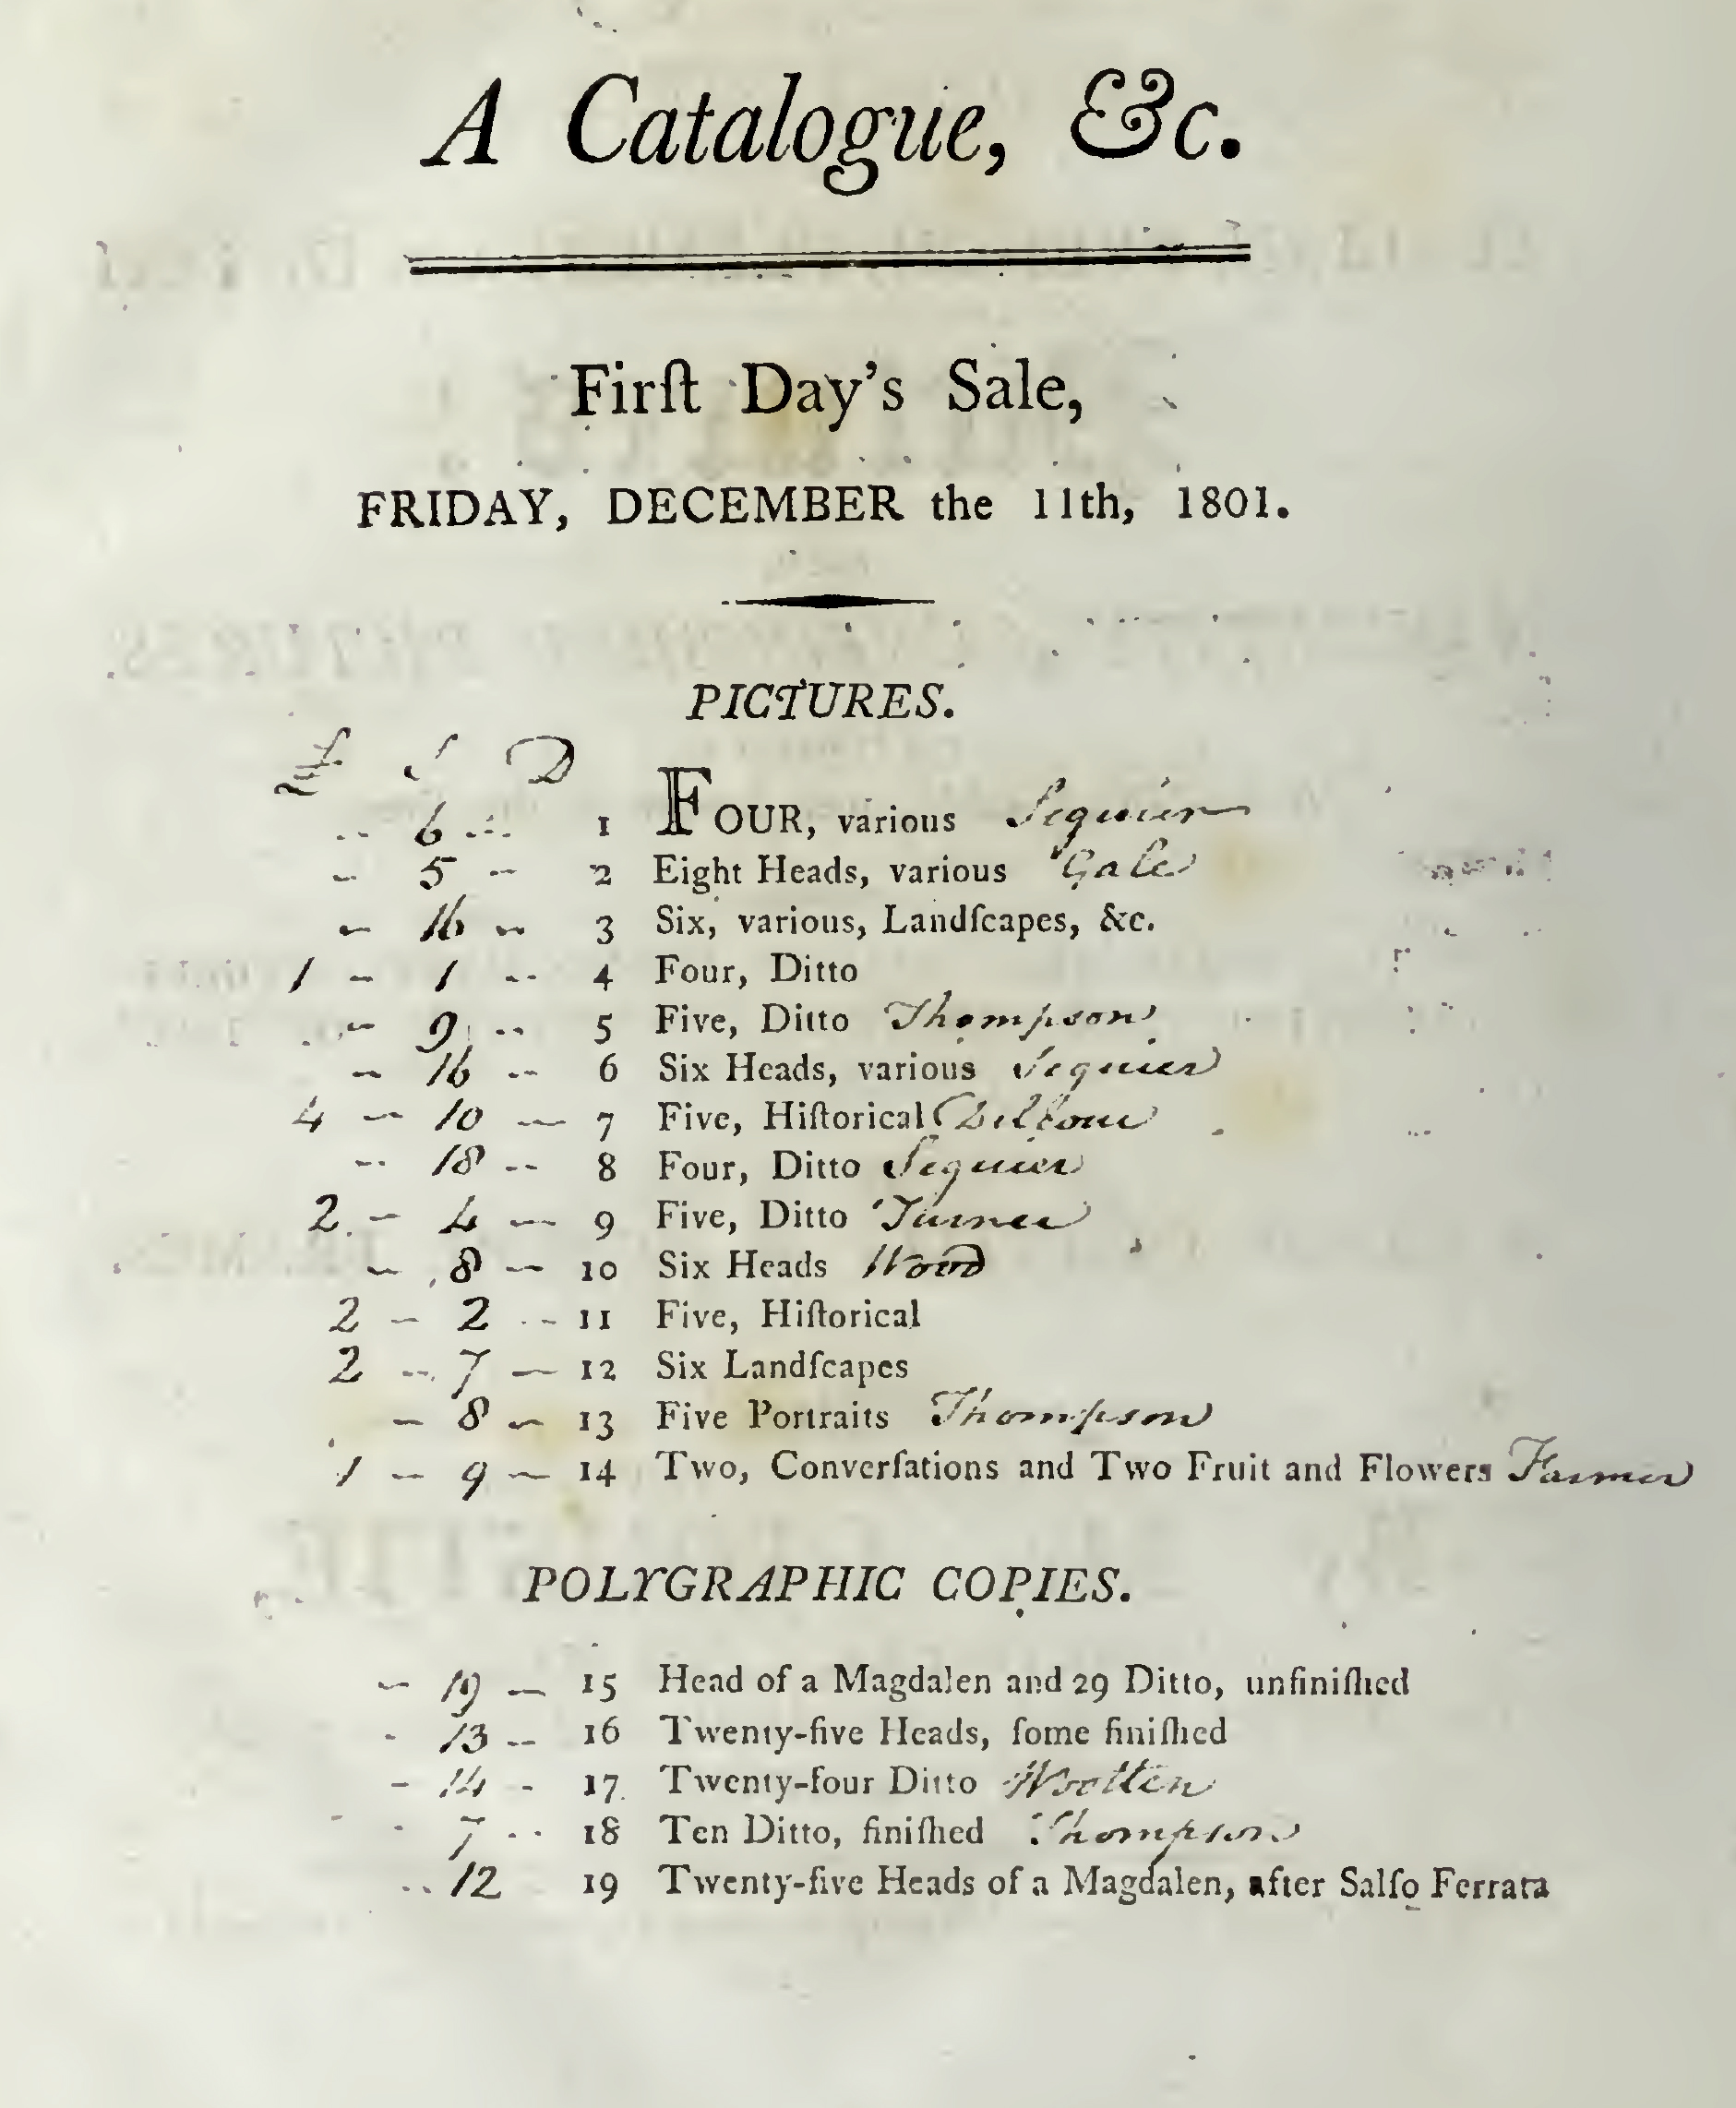 A Catalogue, &c.
Firſt Day's Sale,
FRIDAY, DECEMBER the 11th, 1801.
PICTURES.
£ S D
- 6 - 1 FOUR, various Seguier
- 5 - 2 Eight Heads, various Gale
- 16 - 3 Six, various, Landſcapes, &c.
1 - 1 - 4 Four, Ditto
- 9 - 5 Five, Ditto Thompson
- 16 - 6 Six Heads, various Seguier
4 - 10 - 7 Five, Hiſtorical
- 18 - 8 Four, Ditto Seguier
2 - 4 - 9 Five, Ditto Turner
- 8 - 10 Six Heads Wood
2 - 2 - 11 Five, Hiſtorical
2 - 7 - 12 Six Landſcapes
- 8 - 13 Five Portraits Thompson
1 - 9 - 14 Two, Converſations and Two Fruit and Flowers Farmer
POLYGRAPHIC COPIES.
- 19 - 15 Head of a Magdalen and 29 Ditto, unfiniſhed
- 13 - 16 Twenty-five Heads, ſome finiſhed
- 14 - 17 Twenty-four Ditto Wootten
- 7 - 18 Ten Ditto, finiſhed Thompson
- 12 19 Twenty-five Heads of a Magdalen, after Salſo Ferrata